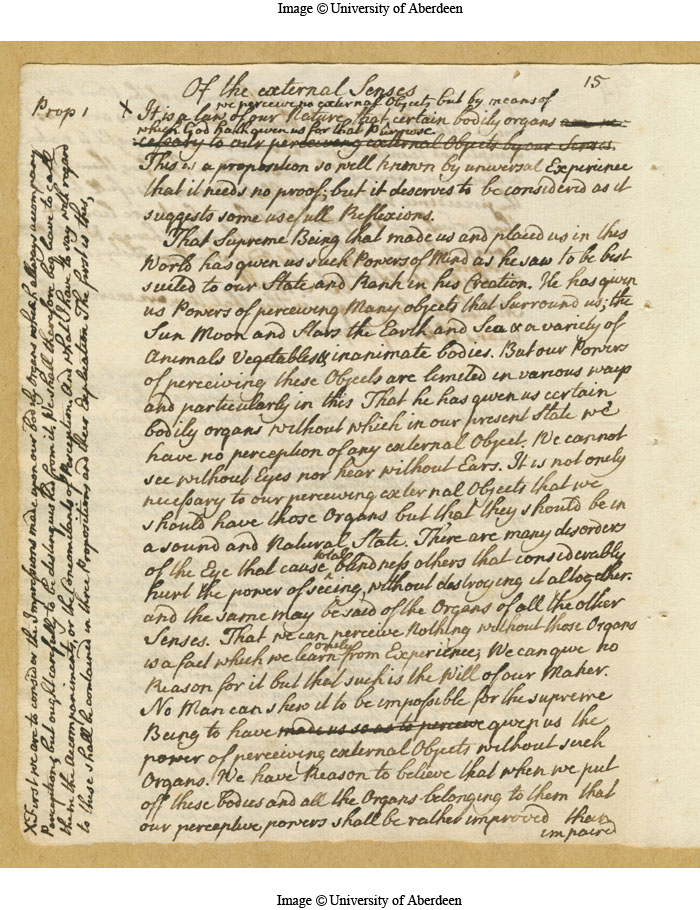 Image © University of Aberdeen
15
Of the external Senses
Prop 1
we perceive no external Objects but by means of
X It is a law of our Nature that certain bodily organs are ne-
which God hath given us for that Purpose
cessary to our perceiving external Objects by our Senses.
This is a proposition so well known by universal Experience
that it needs no proof; but it deserves to be considerd as it
suggests some usefull Reflexions.
That Supreme Being that made us and placed us in this
World has given us such Powers of Mind as he saw to be best
suited to our State and Rank in his Creation. He has given
us Powers of perceiving Many objects that Surround us; the
Sun Moon and Stars the Earth and Sea & a variety of
Animals Vegetables & inanimate bodies. But our Powers
of perceiving these Objects are limited in various ways
and particularly in this That he has given us certain
bodily organs without which in our present State we
have no perception of any external Object. We cannot
see without Eyes nor hear without Ears. It is not onely
necessary to our perceiving external Objects that we
should have those Organs but that they should be in
a sound and Natural State. There are many disorders
total
of the Eye that cause blindness others that considerably
hurt the power of seeing, without destroying it altogether.
and the same may be said of the Organs of all the other
Senses. That we can perceive Nothing without those Organs
onely
is a fact which we learn from Experience; We can give no
Reason for it but that such is the Will of our Maker.
No Man can shew it to be impossible for the supreme
Being to have made us so as to perceive given us the
power of perceiving external Objects without such
Organs. We have Reason to believe that when we put
off these bodies and all the Organs belonging to them that
our perceptive powers shall be rather improved than
impaired
X First we are to consider the Impressions made upon our bodily organs which allways accompany
Perception; but ought carefully to be distinguished from it. We shall therefore beg leave to call
them the Accompaniments, or the Concomitants of Perception. And what I have to say with regard
to these shall be contained in three Propositions and their Explication The first is this,
Image © University of Aberdeen